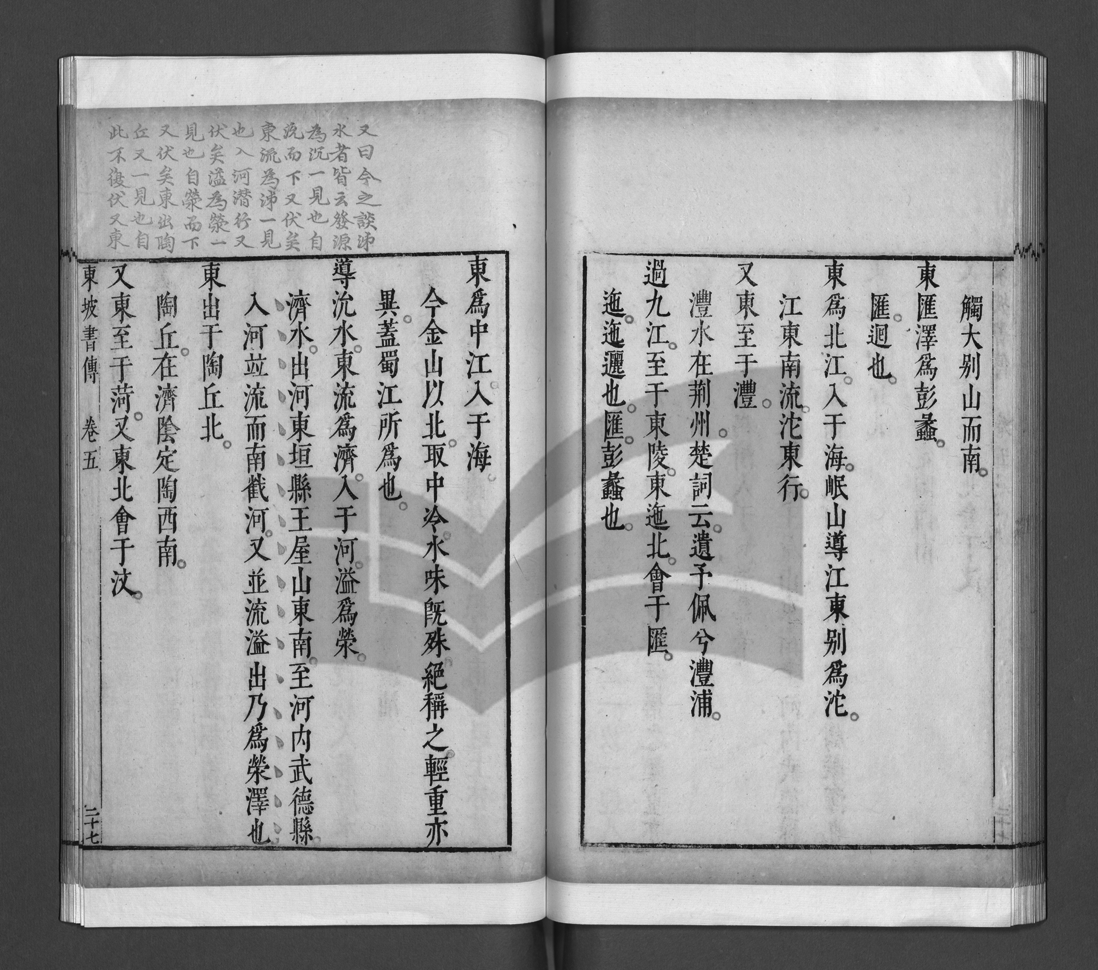 觸大别山而南。
東匯澤爲彭蠡。
匯迴也。
東爲北江。入于海。岷山導江東别爲沱。
江東南流。沱東行。
又東至于澧。
澧水在荆州。楚詞云。遺予佩兮澧浦。
過九江。至于東陵。東迤北。會于匯。
迤。迤邐也。匯。彭蠡也。
東爲中江。入于海。
今金山以北。取中泠水味旣殊絕稱之。輕重亦
異。蓋蜀江所爲也。
導沇水。東流爲濟。入于河。溢爲榮。
濟水。出河東垣縣王屋山東南。至河内武德縣。
入河竝流而南截河。又並流溢出乃爲榮澤也。
東出于陶丘北。
陶丘。在濟陰定陶西南。
又東至于菏。又東北會于汶。
東坡書傳 卷五 二十七
又曰今之談沛
水者皆云發源
為沇一見也自
沇而下又伏矣
東流為沛一見
也入河潛行又
伏矣溢為滎一
見也自滎而下
又伏矣東出陶
丘又一見也自
此不復伏又東